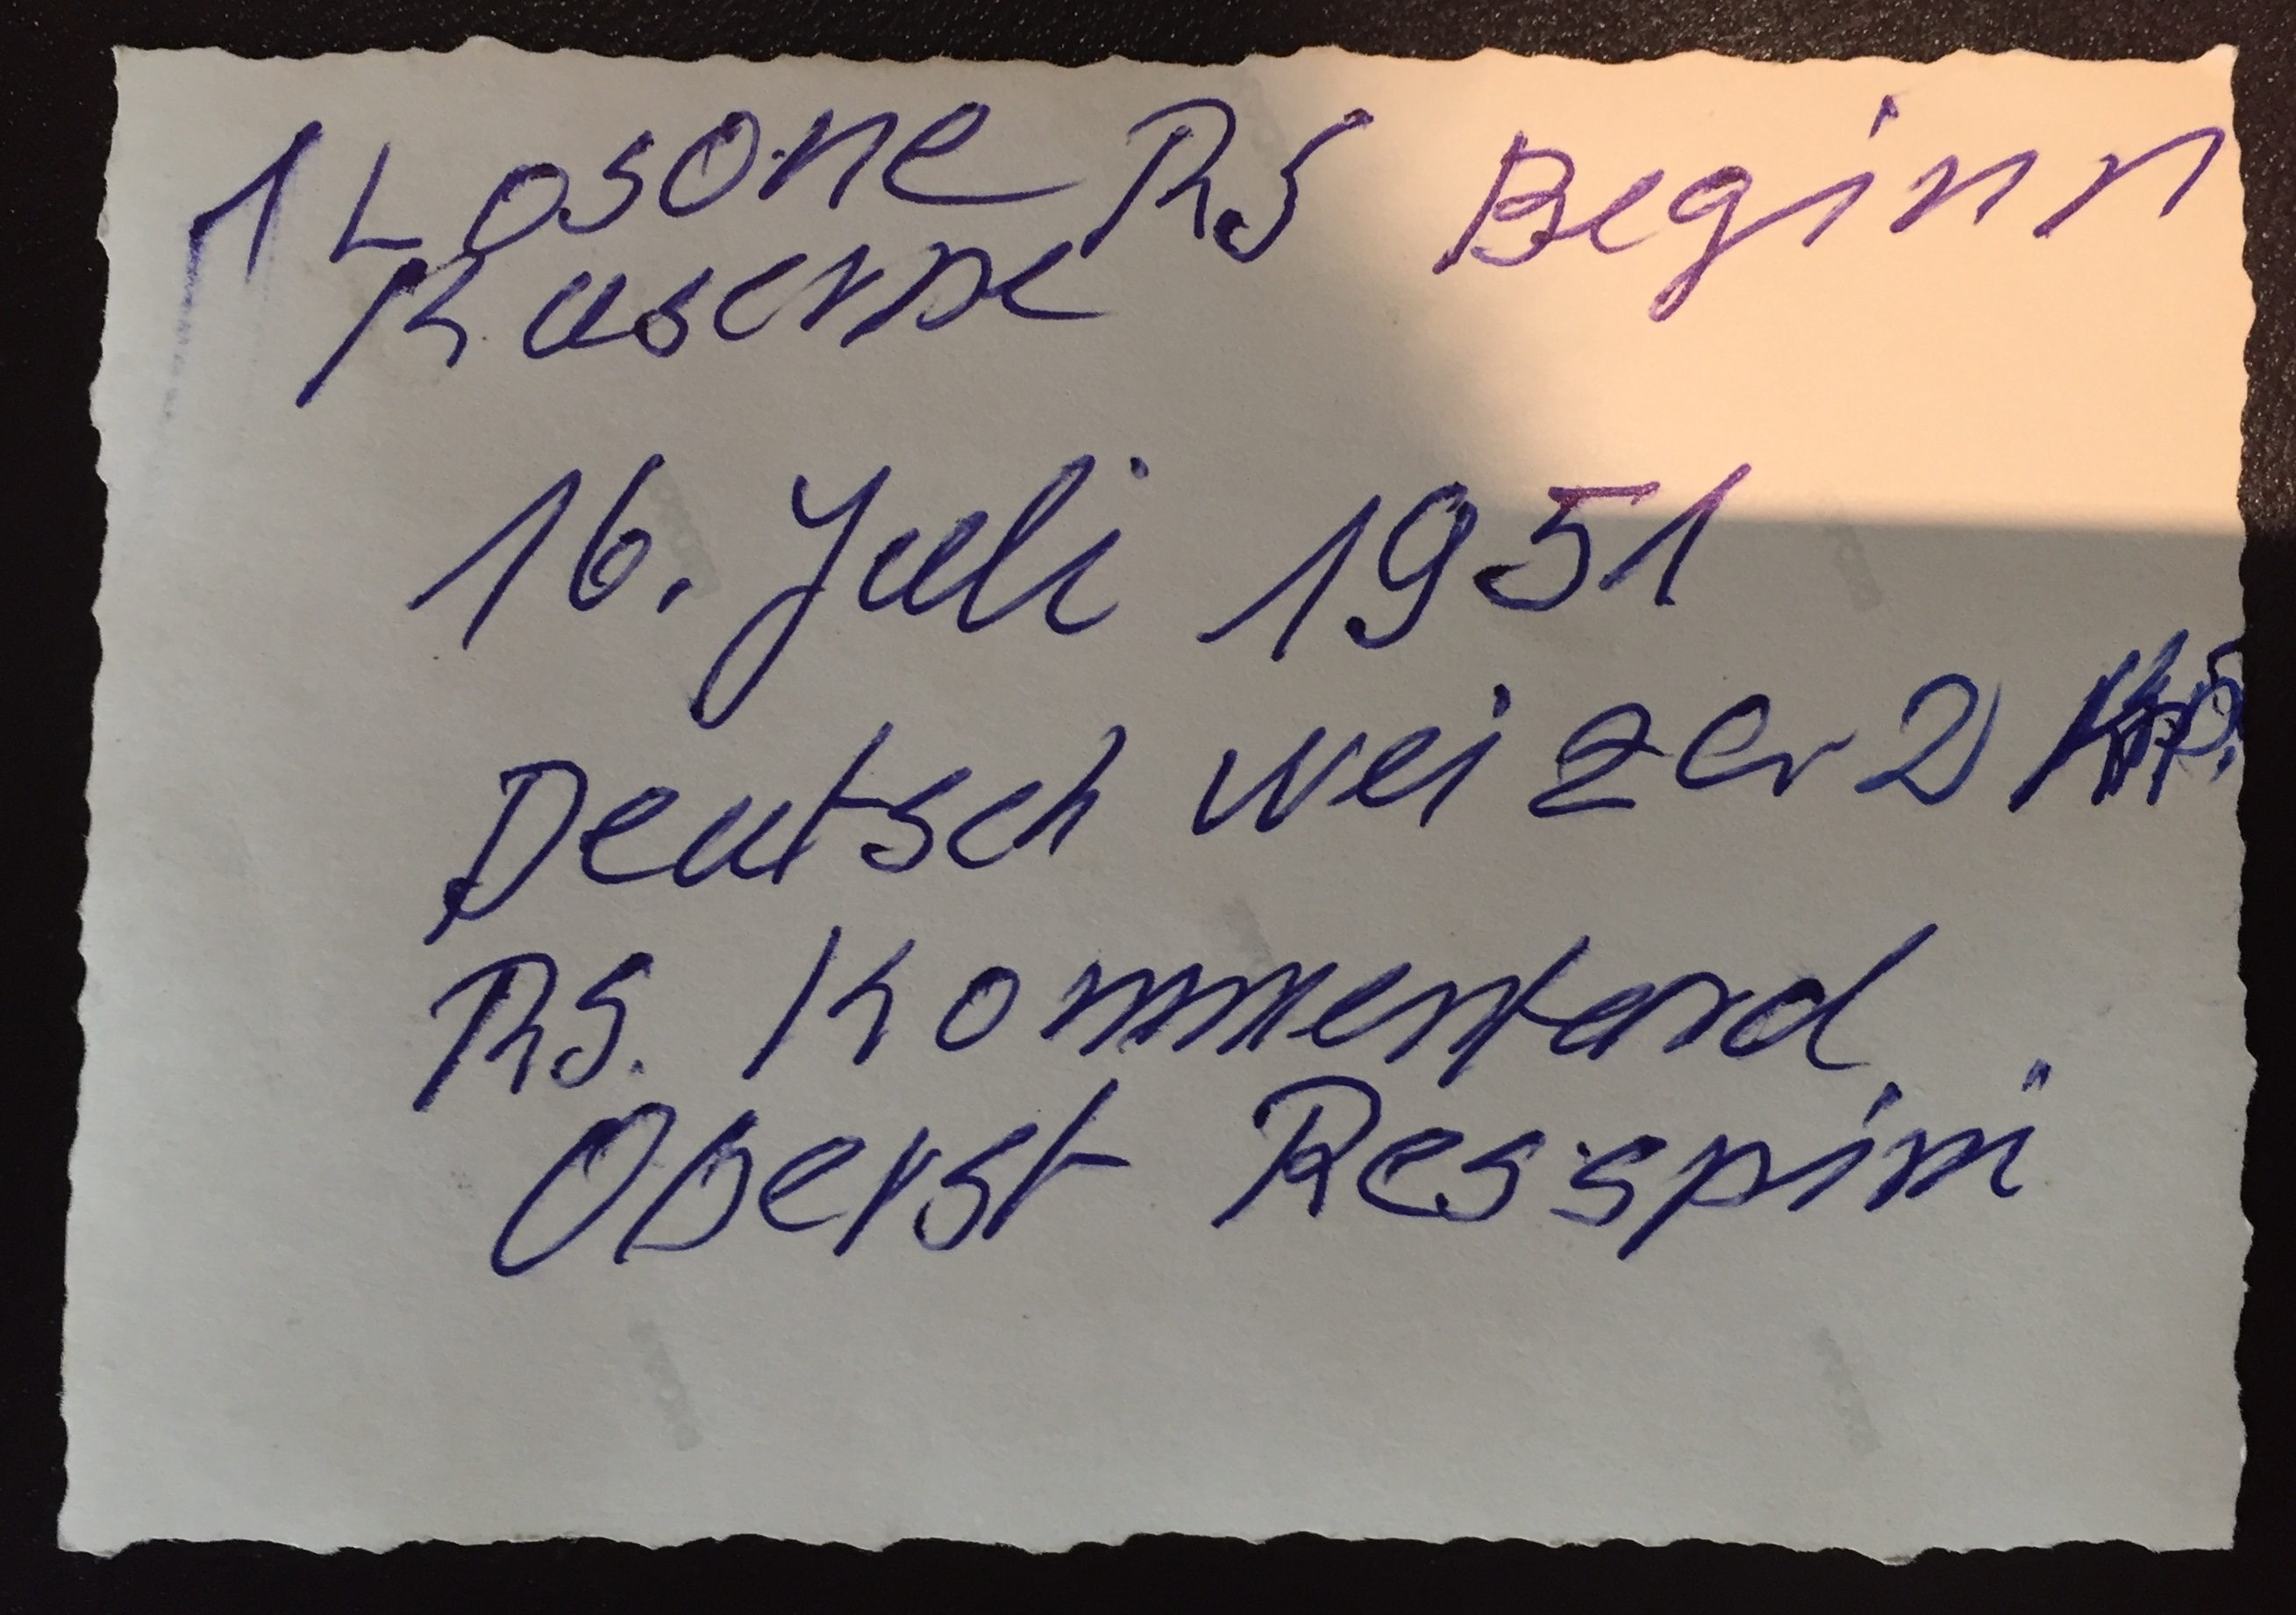 1 Losone RS Beginn
Kaserne
16. Juli 1951
Deutsch weizer 2 Kp.
RS. Kommentand
Oberst Resspini